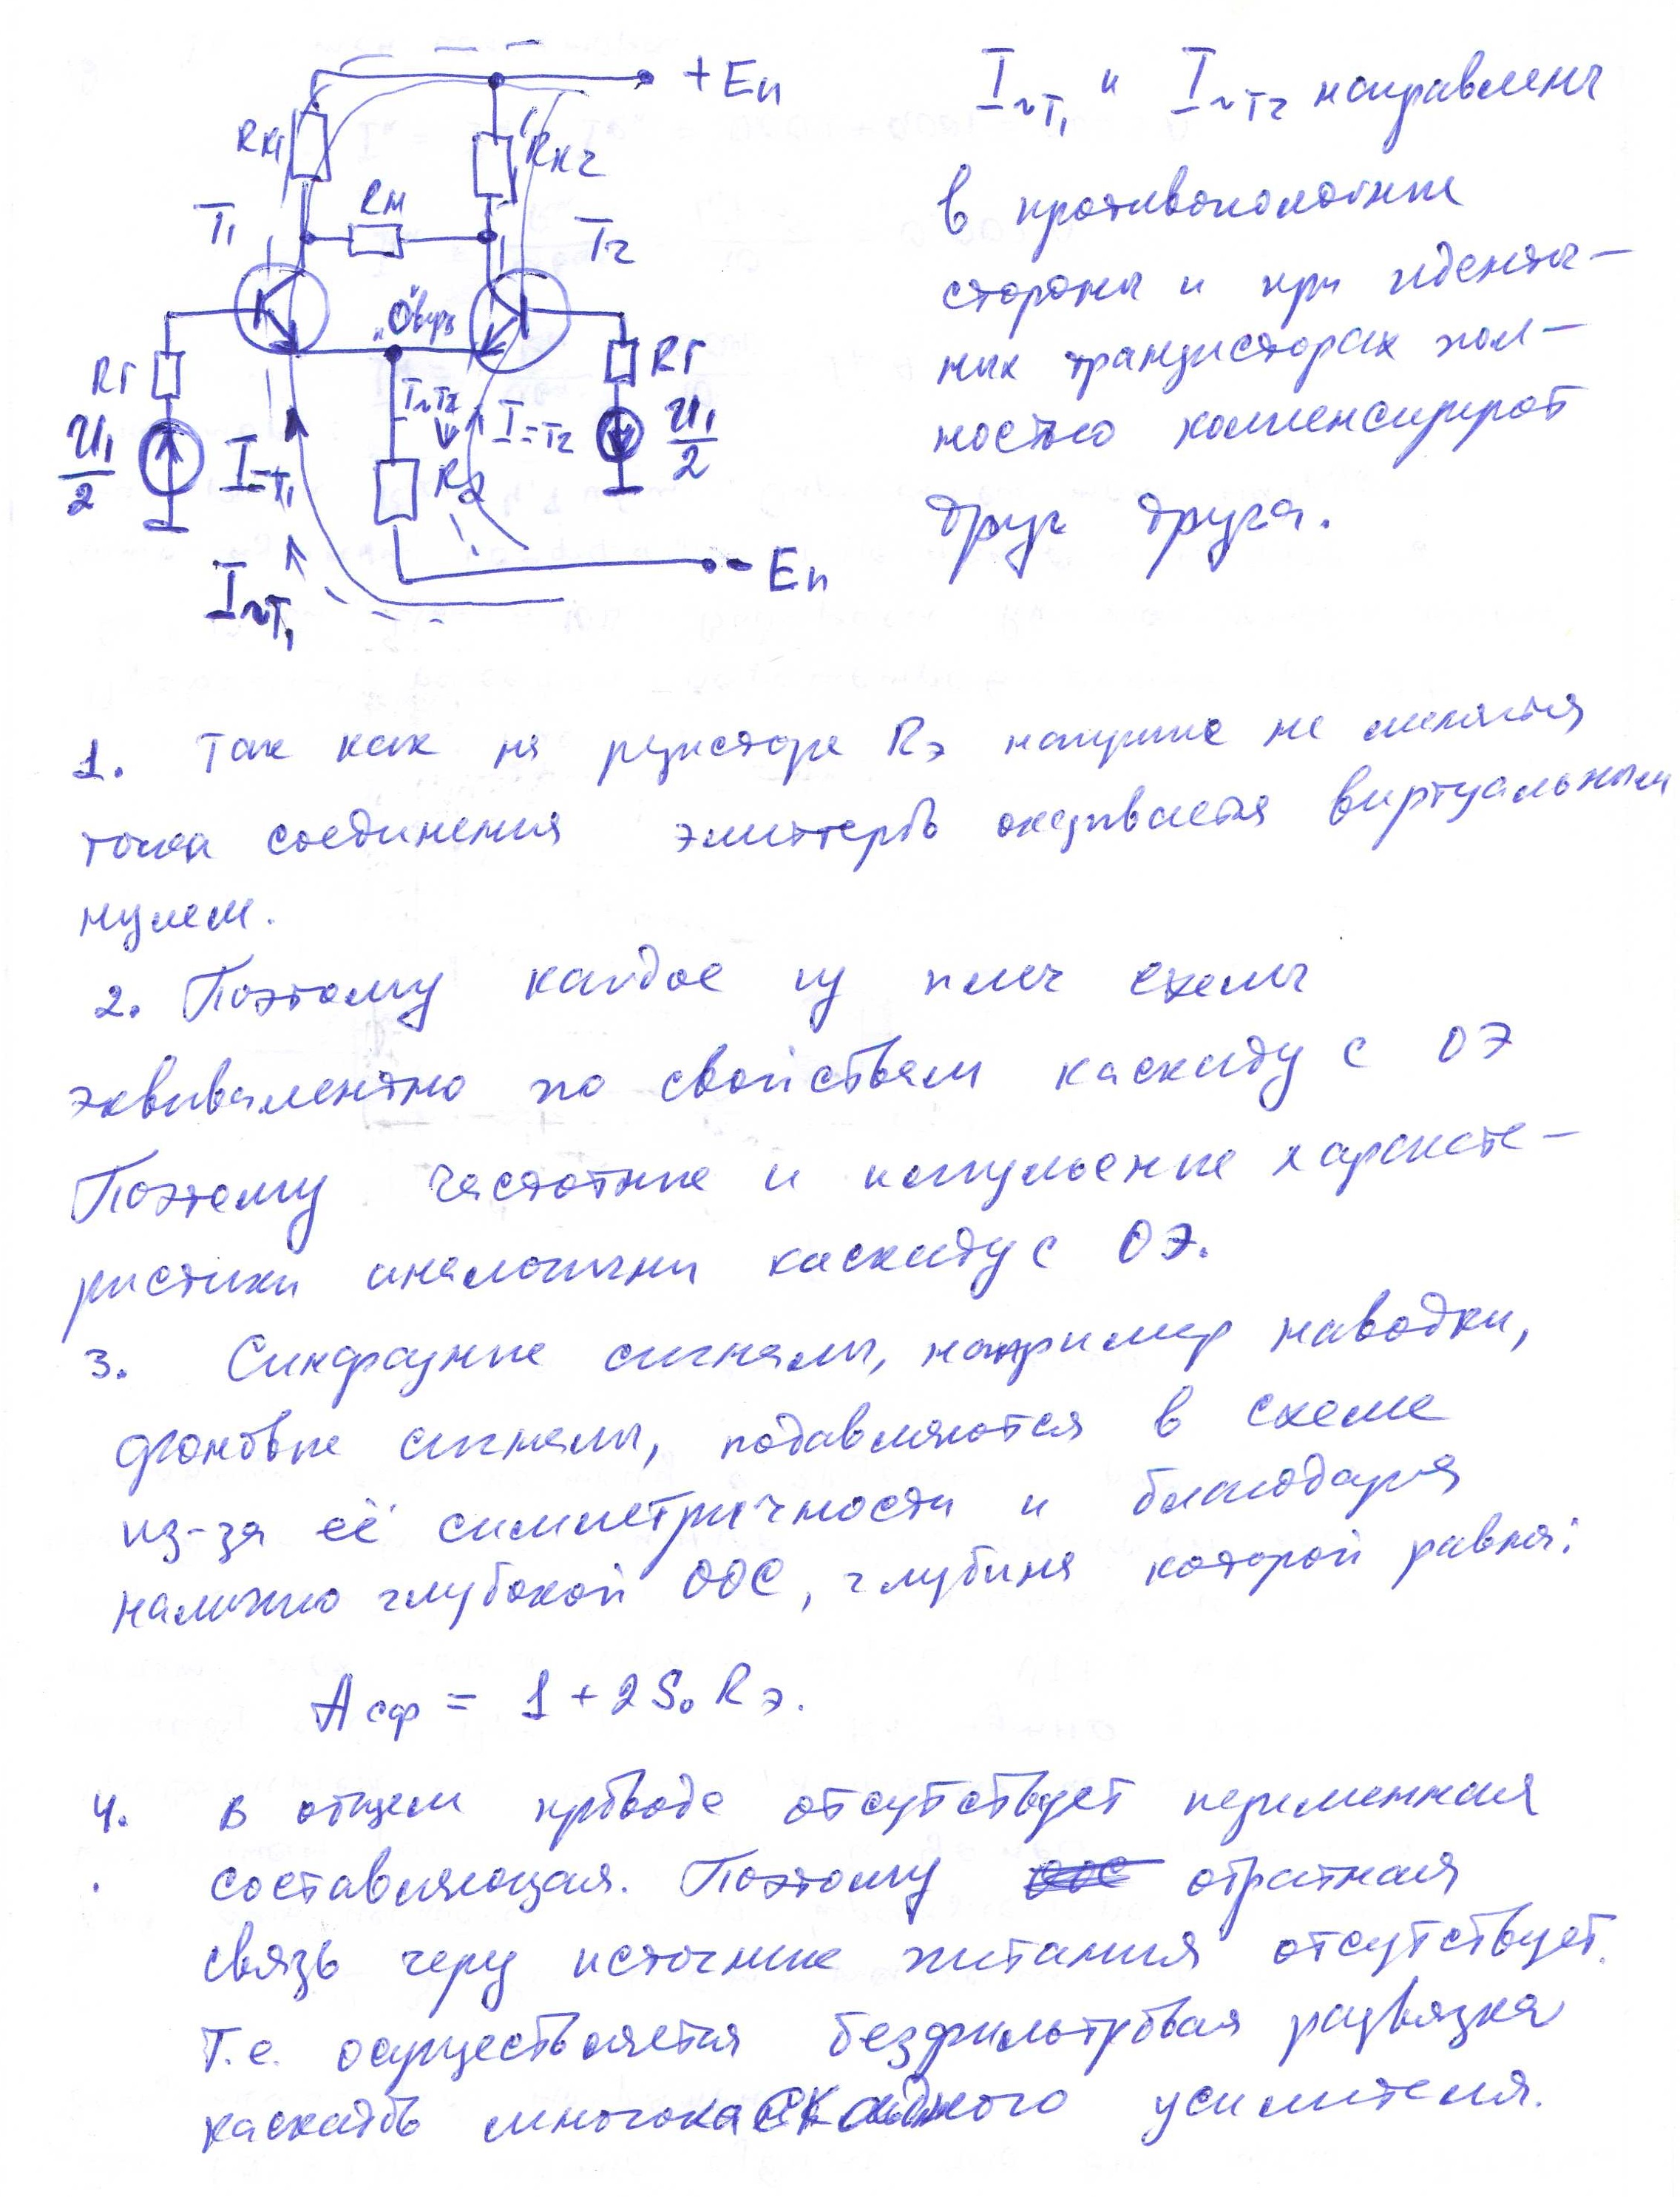 + Eп
Rк1
Rк2
Rн
T1
T2
"0" вирт
Rг
Rг
U1/2
U1/2
I=T1
I~T2
I=T2
Rэ
I~T1
- Eп
I~T1 и I~T2 направлены
в противоположные
стороны и при иденти-
чных транзисторах пол-
ностью компенсируют
друг друга.
1. Так как на резисторе Rэ напряже не меняется
точка соединения эмиттеров оказывается виртуальным
нулем.
2. Поэтому каждое из плеч схемы
эквивалентно по свойствам каскаду с ОЭ
Поэтому частотные и импульсные характе-
ристики аналогичны каскаду с ОЭ.
3. Синфазные сигналы, например наводки,
фоновые сигналы, подавляются в схеме
из-за её симметричности и благодаря
наличию глубокой ООС, глубина которой равна:
Aсф = 1 + 2S₀ Rэ.
4. В общем проводе отсутствует переменная
составляющая. Поэтому обратная
связь через источник питания отсутствует.
Т.е. осуществляется безфильтровая развязка
каскадов многокаскадного усилителя.